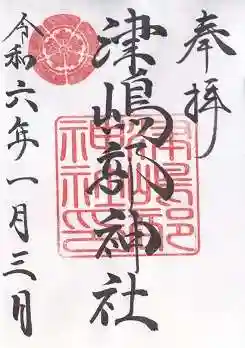 奉拝
津嶋部神社
津嶋部
神社印
令和六年一月三日